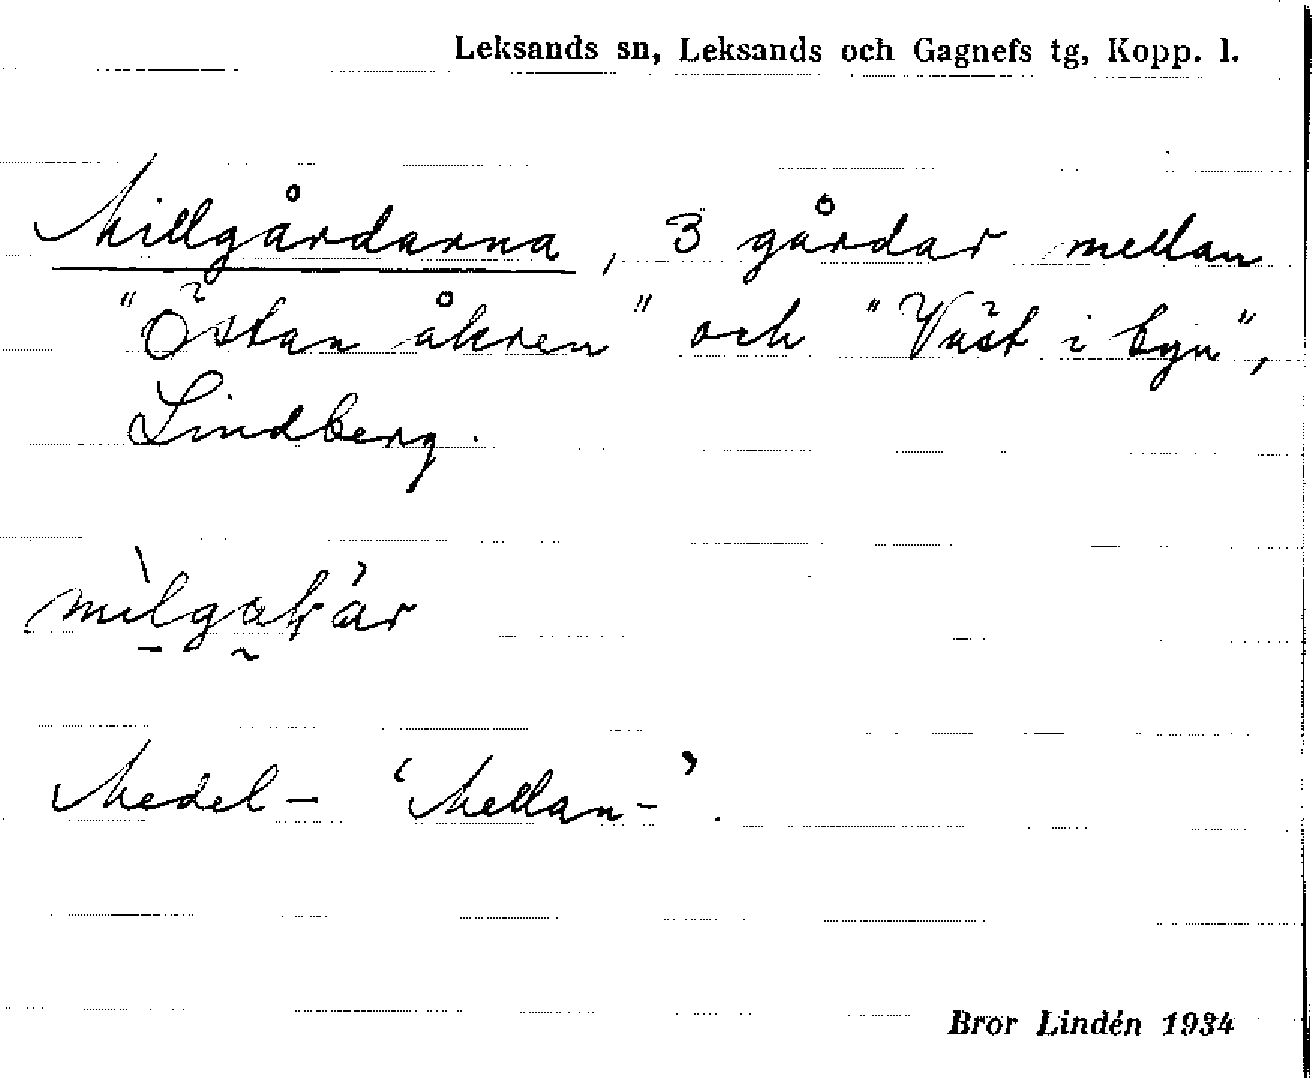 Leksands sn, Leksands och Gagnefs tg, Kopp. l.
Millgårdarna, 3 gårdar mellan
"Östan åkren" och "Väst i byn",
Lindberg.
Medel- ‘Mellan-’.
Bror Lindén 1934